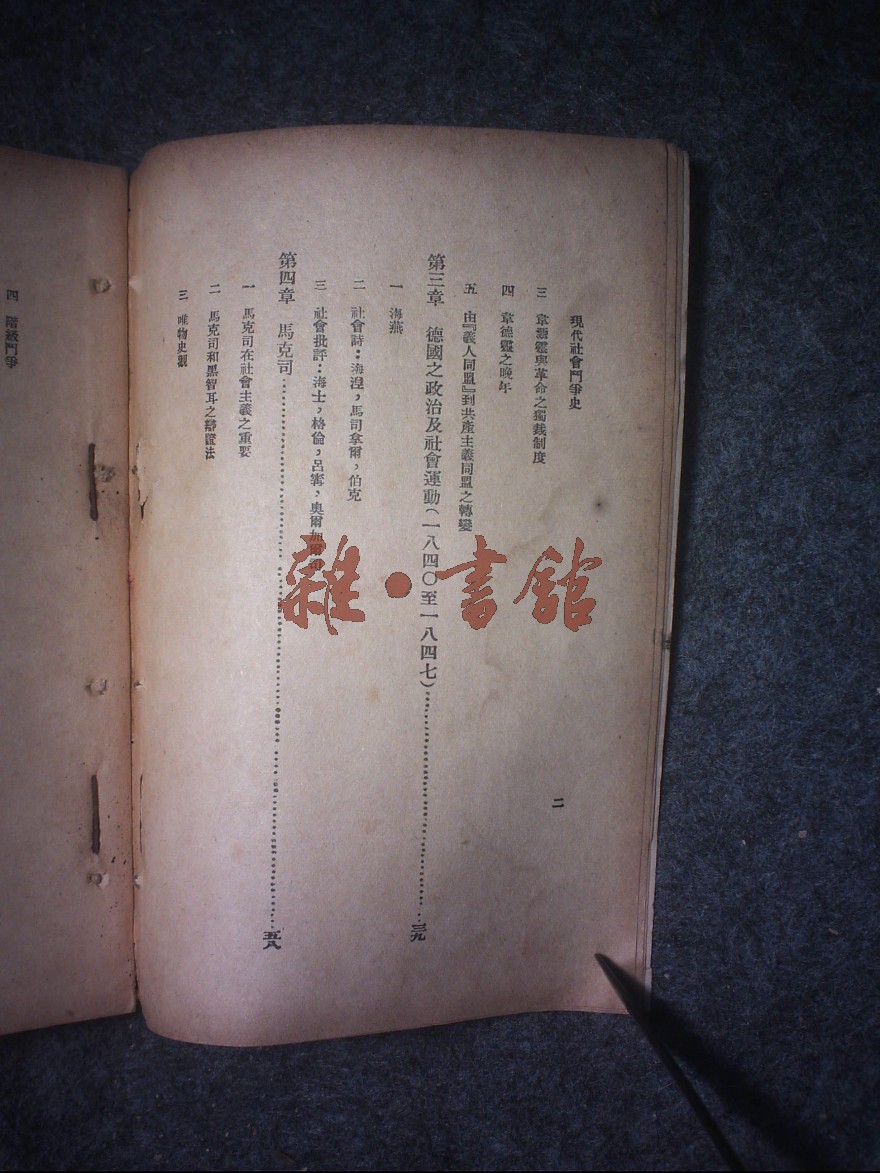 現代社會鬥爭史
二
三 韋德靈與革命之獨裁制度
四 韋德靈之晚年
五 由『義人同盟』到共產主義同盟之轉變
第三章 德國之政治及社會運動(一八四〇至一八四七)……三九
一 海燕
二 社會詩：海涅，馬司拿爾，伯克
三 社會批評：海士，格倫，呂寗，奧爾加爾司
第四章 馬克司……五八
一 馬克司在社會主義之重要
二 馬克司和黑智耳之辯證法
三 唯物史觀
四 階級鬥爭
雜·書館